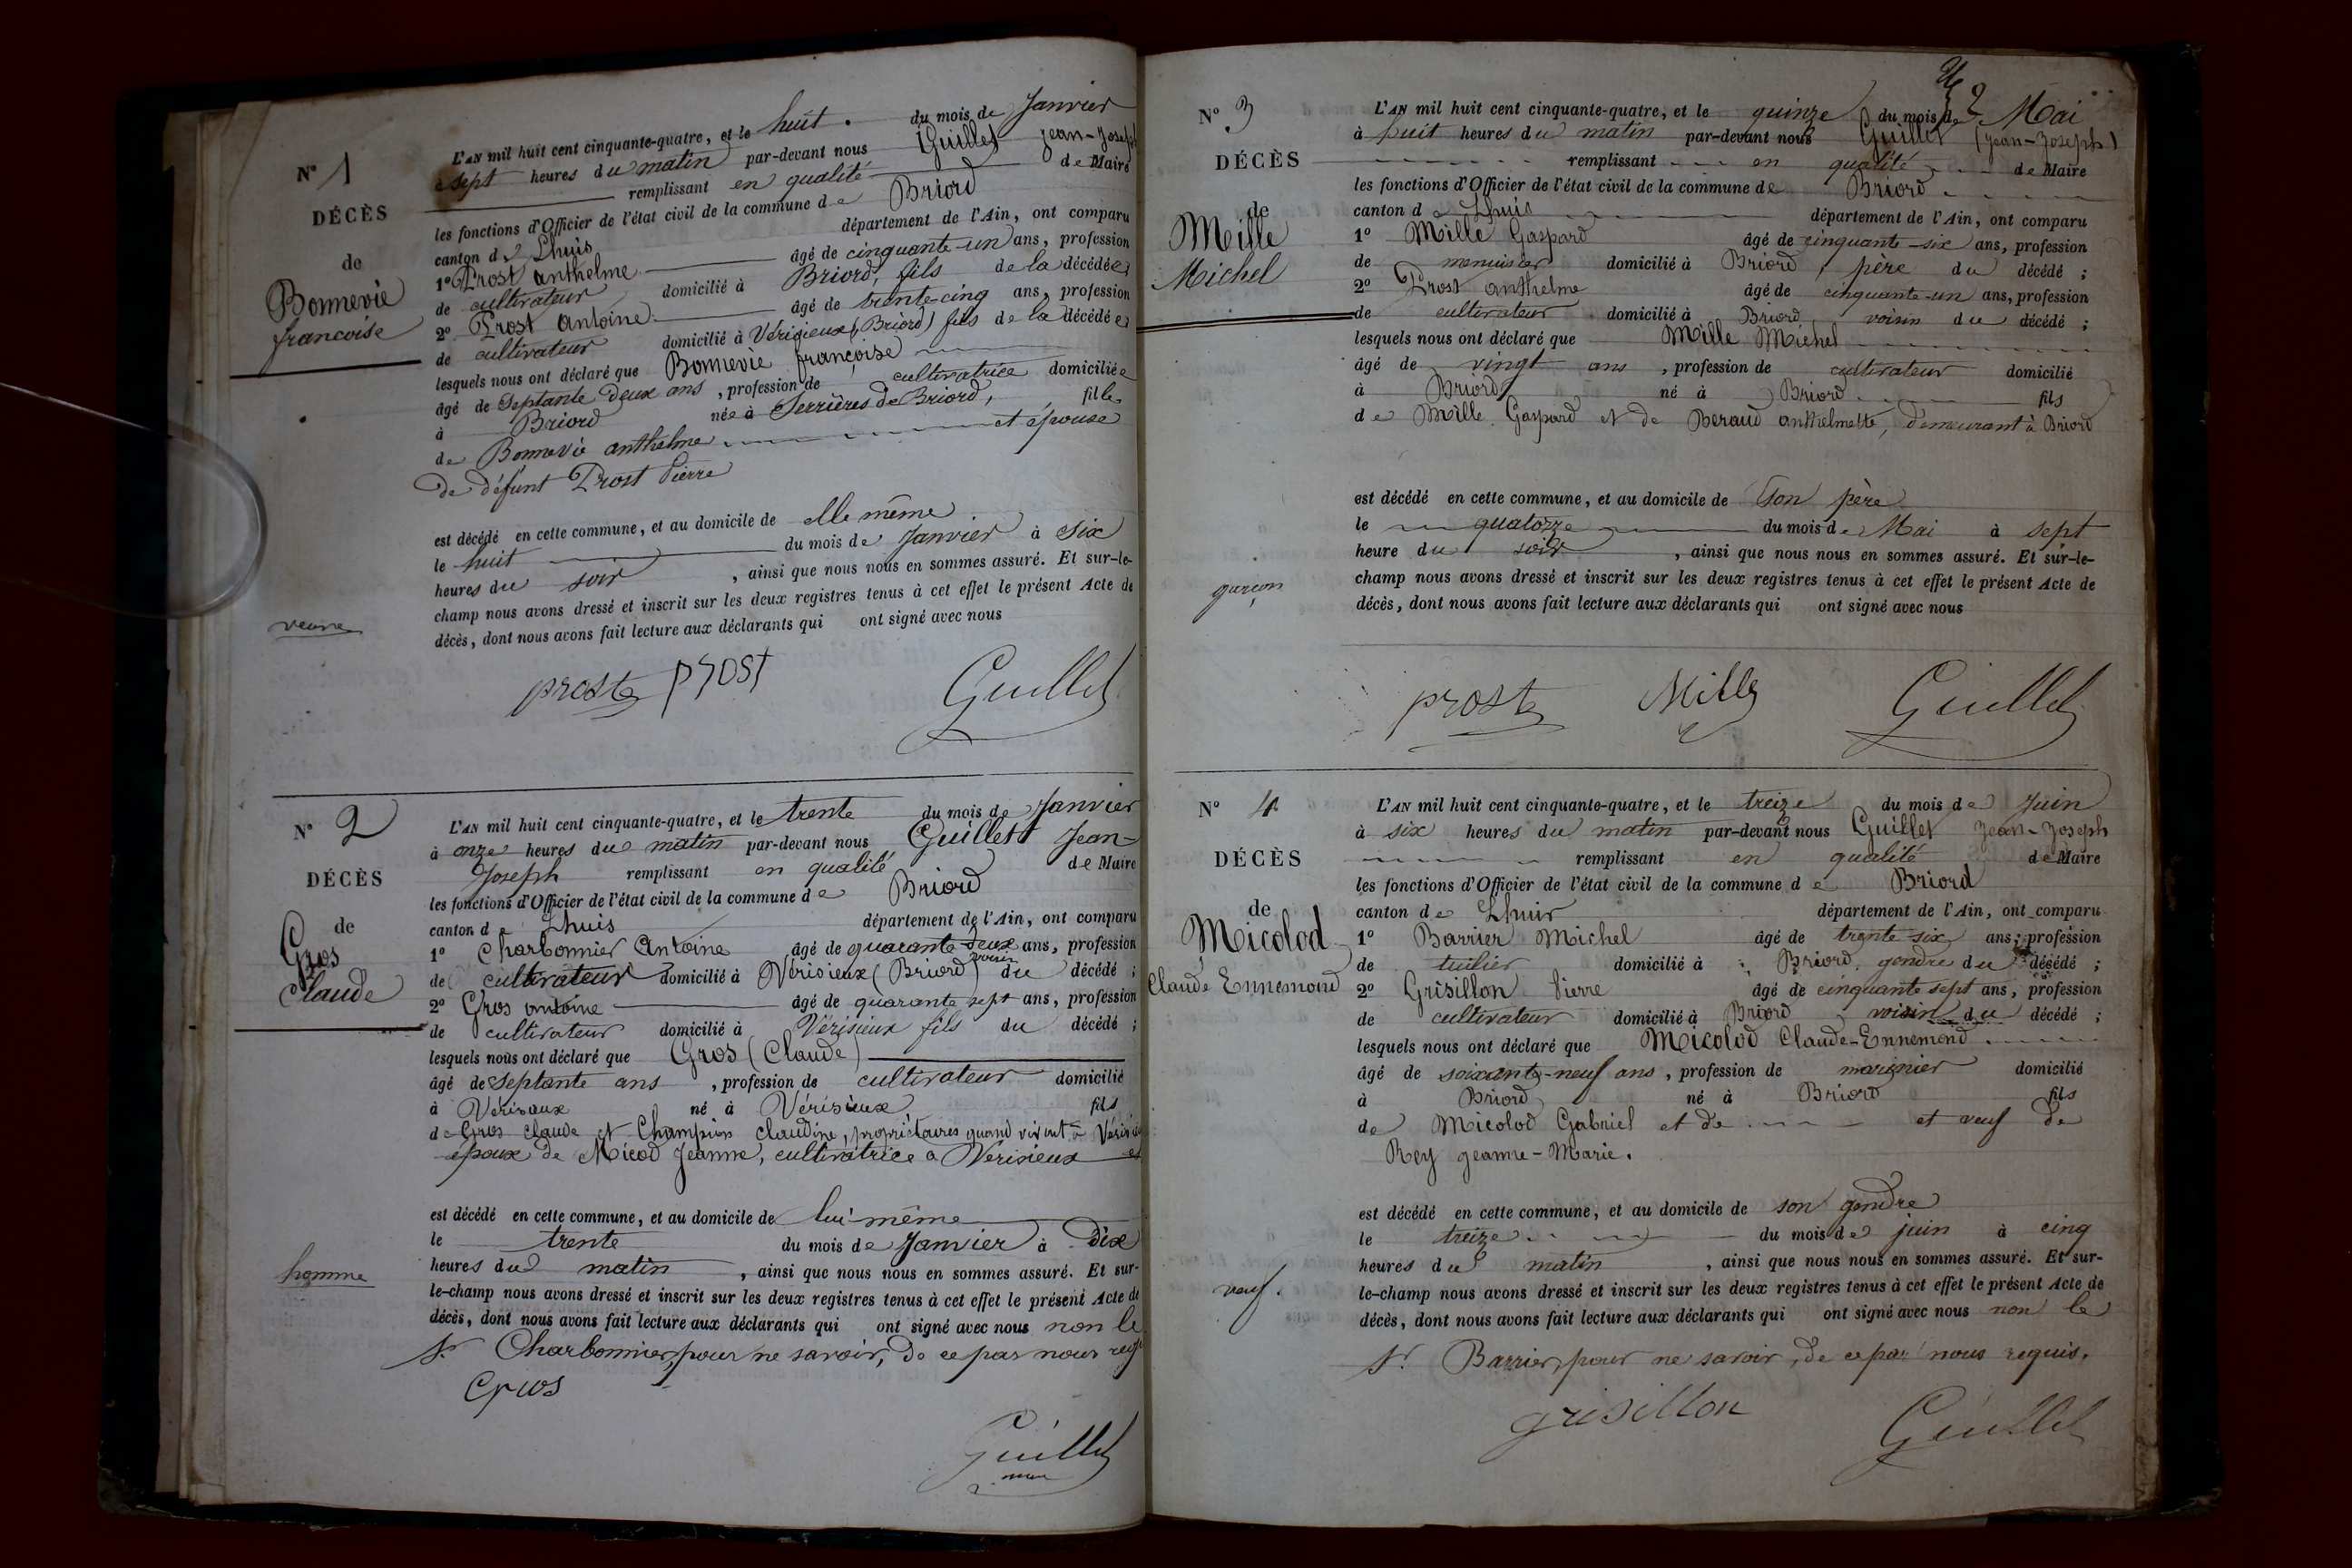 N° 1
DÉCÈS
de
Bonnevie
francoise
veuve
L'AN mil huit cent cinquante-quatre, et le huit. du mois de Janvier
à sept heures du matin par-devant nous Guillet Jean-Joseph
remplissant en qualité de Maire
les fonctions d'Officier de l'état civil de la commune de Briord
canton de Lhuis département de l'Ain, ont comparu
1° Prost anthelme âgé de cinquante-un ans, profession
de cultivateur domicilié à Briord, fils de la décédée
2° Prost Antoine âgé de trente-cinq ans, profession
de cultivateur domicilié à Vérisieux (Briord) fils de la décédée
lesquels nous ont déclaré que Bonnevie françoise
âgé de Septante deux ans, profession de cultivatrice domiciliée
à Briord née à Serrières de Briord, fille
de Bonnevie anthelme et épouse
de défunt Prost Pierre
est décédé en cette commune, et au domicile de elle même
le huit du mois de Janvier à six
heures du soir, ainsi que nous nous en sommes assuré. Et sur-le-
champ nous avons dressé et inscrit sur les deux registres tenus à cet effet le présent Acte de
décès, dont nous avons fait lecture aux déclarants qui ont signé avec nous
prost prost Guillet
N° 2
DÉCÈS
de
Gros
Claude
homme
L'AN mil huit cent cinquante-quatre, et le trente du mois de Janvier
à onze heures du matin par-devant nous Guillet Jean-
Joseph remplissant en qualité de Maire
les fonctions d'Officier de l'état civil de la commune de Briord
canton de Lhuis département de l'Ain, ont comparu
1° Charbonnier Antoine âgé de quarante deux ans, profession
de cultivateur domicilié à Vérisieux (Briord) voisin du décédé ;
2° Gros antoine âgé de quarante sept ans, profession
de cultivateur domicilié à Vérisieux fils du décédé ;
lesquels nous ont déclaré que Gros (Claude)
âgé de Septante ans, profession de cultivateur domicilié
à Vérisieux né à Vérisieux fils
de Gros Claude et Champion Claudine, propriétaires quand vivant à
époux de Micod Jeanne, cultivatrice a Vérisieux
est décédé en cette commune, et au domicile de lui-même
le trente du mois de Janvier à Dix
heures du matin, ainsi que nous nous en sommes assuré. Et sur-
le-champ nous avons dressé et inscrit sur les deux registres tenus à cet effet le présent Acte de
décès, dont nous avons fait lecture aux déclarants qui ont signé avec nous non le
Sr Charbonnier, pour ne savoir, de ce par nous
Gros
Guillet
N° 3
DÉCÈS
de
Mille
Michel
garçon
L'AN mil huit cent cinquante-quatre, et le quinze du mois de Mai
à huit heures du matin par-devant nous Guillet (Jean-Joseph)
remplissant en qualité de Maire
les fonctions d'Officier de l'état civil de la commune de Briord
canton de Lhuis département de l'Ain, ont comparu
1° Mille Gaspard âgé de cinquante-six ans, profession
de menuisier domicilié à Briord, père du décédé ;
2° Prost anthelme âgé de cinquante-un ans, profession
de cultivateur domicilié à Briord voisin du décédé ;
lesquels nous ont déclaré que Mille Michel
âgé de vingt ans, profession de cultivateur domicilié
à Briord né à Briord fils
de Mille Gaspard et de Beraud anthelmette, demeurant à Briord
est décédé en cette commune, et au domicile de son père
le quatorze du mois de Mai à sept
heure du soir, ainsi que nous nous en sommes assuré. Et sur-le-
champ nous avons dressé et inscrit sur les deux registres tenus à cet effet le présent Acte de
décès, dont nous avons fait lecture aux déclarants qui ont signé avec nous
prost Mille Guillet
N° 4
DÉCÈS
de
Micolod
Claude Ennemond
veuf.
L'AN mil huit cent cinquante-quatre, et le treize du mois de Juin
à six heures du matin par-devant nous Guillet Jean-Joseph
remplissant en qualité de Maire
les fonctions d'Officier de l'état civil de la commune de Briord
canton de Lhuis département de l'Ain, ont comparu
1° Barrier Michel âgé de trente six ans, profession
de tuilier domicilié à Briord, gendre du décédé ;
2° Grisillon Pierre âgé de cinquante sept ans, profession
de cultivateur domicilié à Briord voisin du décédé ;
lesquels nous ont déclaré que Micolod Claude-Ennemond
âgé de soixante-neuf ans, profession de marinier domicilié
à Briord né à Briord fils
de Micolod Gabriel et de et veuf de
Rey Jeanne-Marie.
est décédé en cette commune, et au domicile de son gendre
le treize du mois de juin à cinq
heures du matin, ainsi que nous nous en sommes assuré. Et sur-
le-champ nous avons dressé et inscrit sur les deux registres tenus à cet effet le présent Acte de
décès, dont nous avons fait lecture aux déclarants qui ont signé avec nous non le
Sr. Barrier, pour ne savoir, de ce par nous requis.
grisillon Guillet